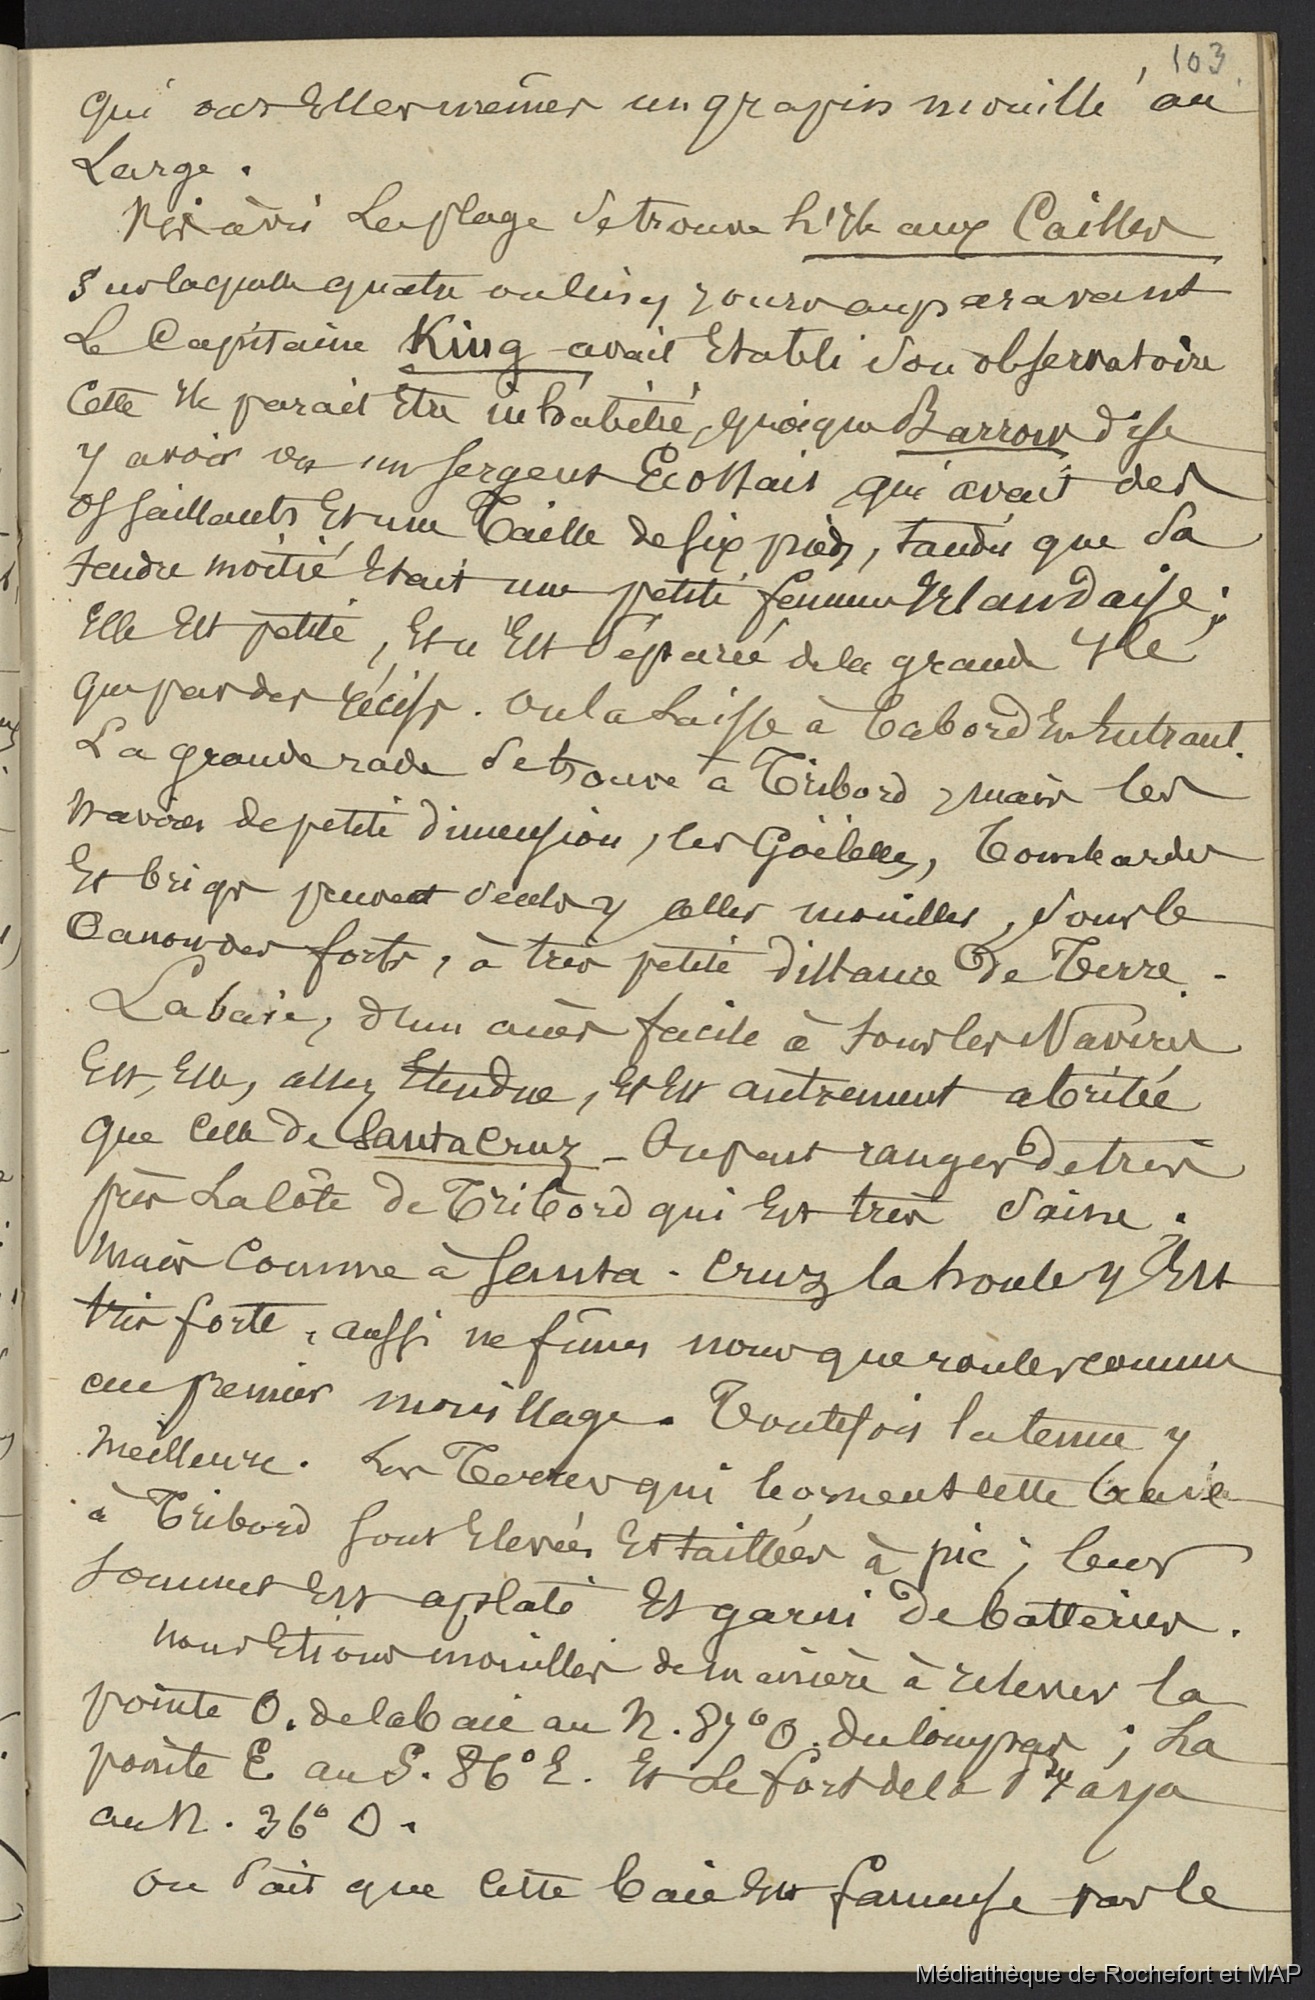 103
qui ont Elles mêmes un grapin mouillé au
Large.
Vis à vis La plage se trouve L'Ile aux Cailles
sur laquelle quatre ou cinq jours auparavant
Le Capitaine King avait Etabli son observatoire
Cette Ile parait être inhabitée, quoique Barrow dise
y avoir vu un sergent Ecossais qui avait des
os saillants Et une Taille de six pieds, tandis que sa
tendre moitié Etait une petite femme Irlandaise;
Elle Est petite, Et n'Est séparée de la grande Ile
que par des récifs. On la Laisse à babord En Entrant.
La grande rade se trouve à Tribord, mais les
navires de petite dimension, les Goëlettes, bombardes
Et brigs peuvent seuls y aller mouiller, sous le
Canon des forts, à très petite distance De Terre.
La baie, d'un accès facile à tous les Navires
Est, Elle, assez Etendue, Et Est autrement abritée
que celle de Santa Cruz - On peut ranger de très
près La Côte de Tribord qui Est très saine.
mais Comme à Santa-Cruz la houle y Est
très forte, aussi ne fîmes nous que rouler comme
au premier mouillage. Toutefois la tenue y
meilleure. Les Terres qui bornent cette baie
à Tribord sont Elevées Et taillées à pic; leur
sommet Est aplati Et garni De batteries.
nous Etions mouillés de manière à relever la
pointe O. de la baie au N. 87° O. du compas; La
pointe E au S. 86° E. Et Le fort de la
au N. 36° O.
on sait que cette baie Est fameuse par le
Médiathèque de Rochefort et MAP